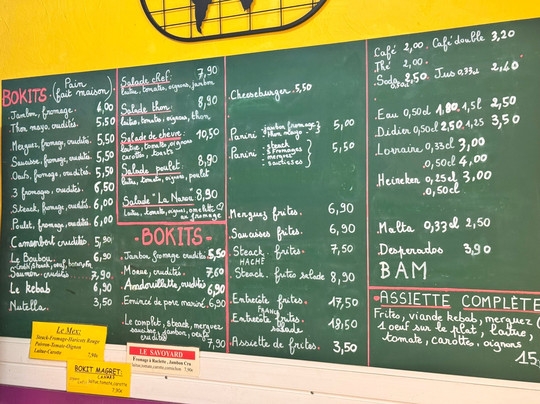 BOKITS (Pain fait maison)
Jambon, fromage. 6,00
Thon mayo, crudités. 5,50
Merguez, fromage, crudités 5,50
Saucisse, fromage, crudités 5,50
Oeufs, fromage, crudités. 5,50
3 fromages, crudités 6,50
Steack, fromage, crudités 6,00
Poulet, fromage, crudités. 6,00
Camembert crudités 5,90
Le Boucou.
Saumon crudités 7,90
Le kebab 6,90
Nutella. 3,50
Salade chef. 7,90
laitue, tomates, oignons, jambon
Salade thon. 8,90
laitue, tomates, oignons, thon
Salade de chèvre. 10,50
laitue, tomates, oignons
carottes, toasts
Salade poulet. 8,90
laitue, tomates, oignons, poulet
Salade "La Nassa" 8,90
laitue, tomates, oignons, omelette
au fromage
- BOKITS -
Jambon fromage crudités 5,50
Morue, crudités. 7,60
Andouillette, crudités 6,90
Emincé de porc mariné. 6,90
Le complet, steack, merguez
saucisse, jambon, oeufs
crudités 7,90
Cheeseburger. 5,50
Panini jambon fromage
thon mayo 5,00
Panini steack
3 fromages
merguez
saucisses 5,50
Merguez frites. 6,90
Saucisses frites. 6,90
Steack frites. 7,50
HACHÉ
Steack. frites salade 8,90
Entrecôte frites 17,50
Entrecôte frites 18,50
salade
Assiette de frites. 3,50
Café 2,00. Café double 3,20
Thé 2,00
Soda 2,50 Jus 0,33cl 2,40
Eau 0,50cl 1,80. 1,5l 2,50
Didier 0,50cl 2,50 1,25 3,50
Lorraine 0,33cl 3,00
0,50cl 4,00
Heineken 0,25cl 3,00
0,50cl
Malta 0,33cl 2,50
Desperados 3,90
BAM
- ASSIETTE COMPLÈTE
Frites, viande kebab, merguez
1 oeuf sur le plat, laitue,
tomate, carottes, oignons
15
Le Mex:
Steack-Fromage-Haricots Rouge
Poivron-Tomate-Oignon
Laitue-Carotte 7,90€
BOKIT MAGRET:
CANARD
laitue,tomate,carotte
7,90€
LE SAVOYARD
Fromage à Raclette, Jambon Cru
laitue,tomate,carotte,cornichon 7,90€